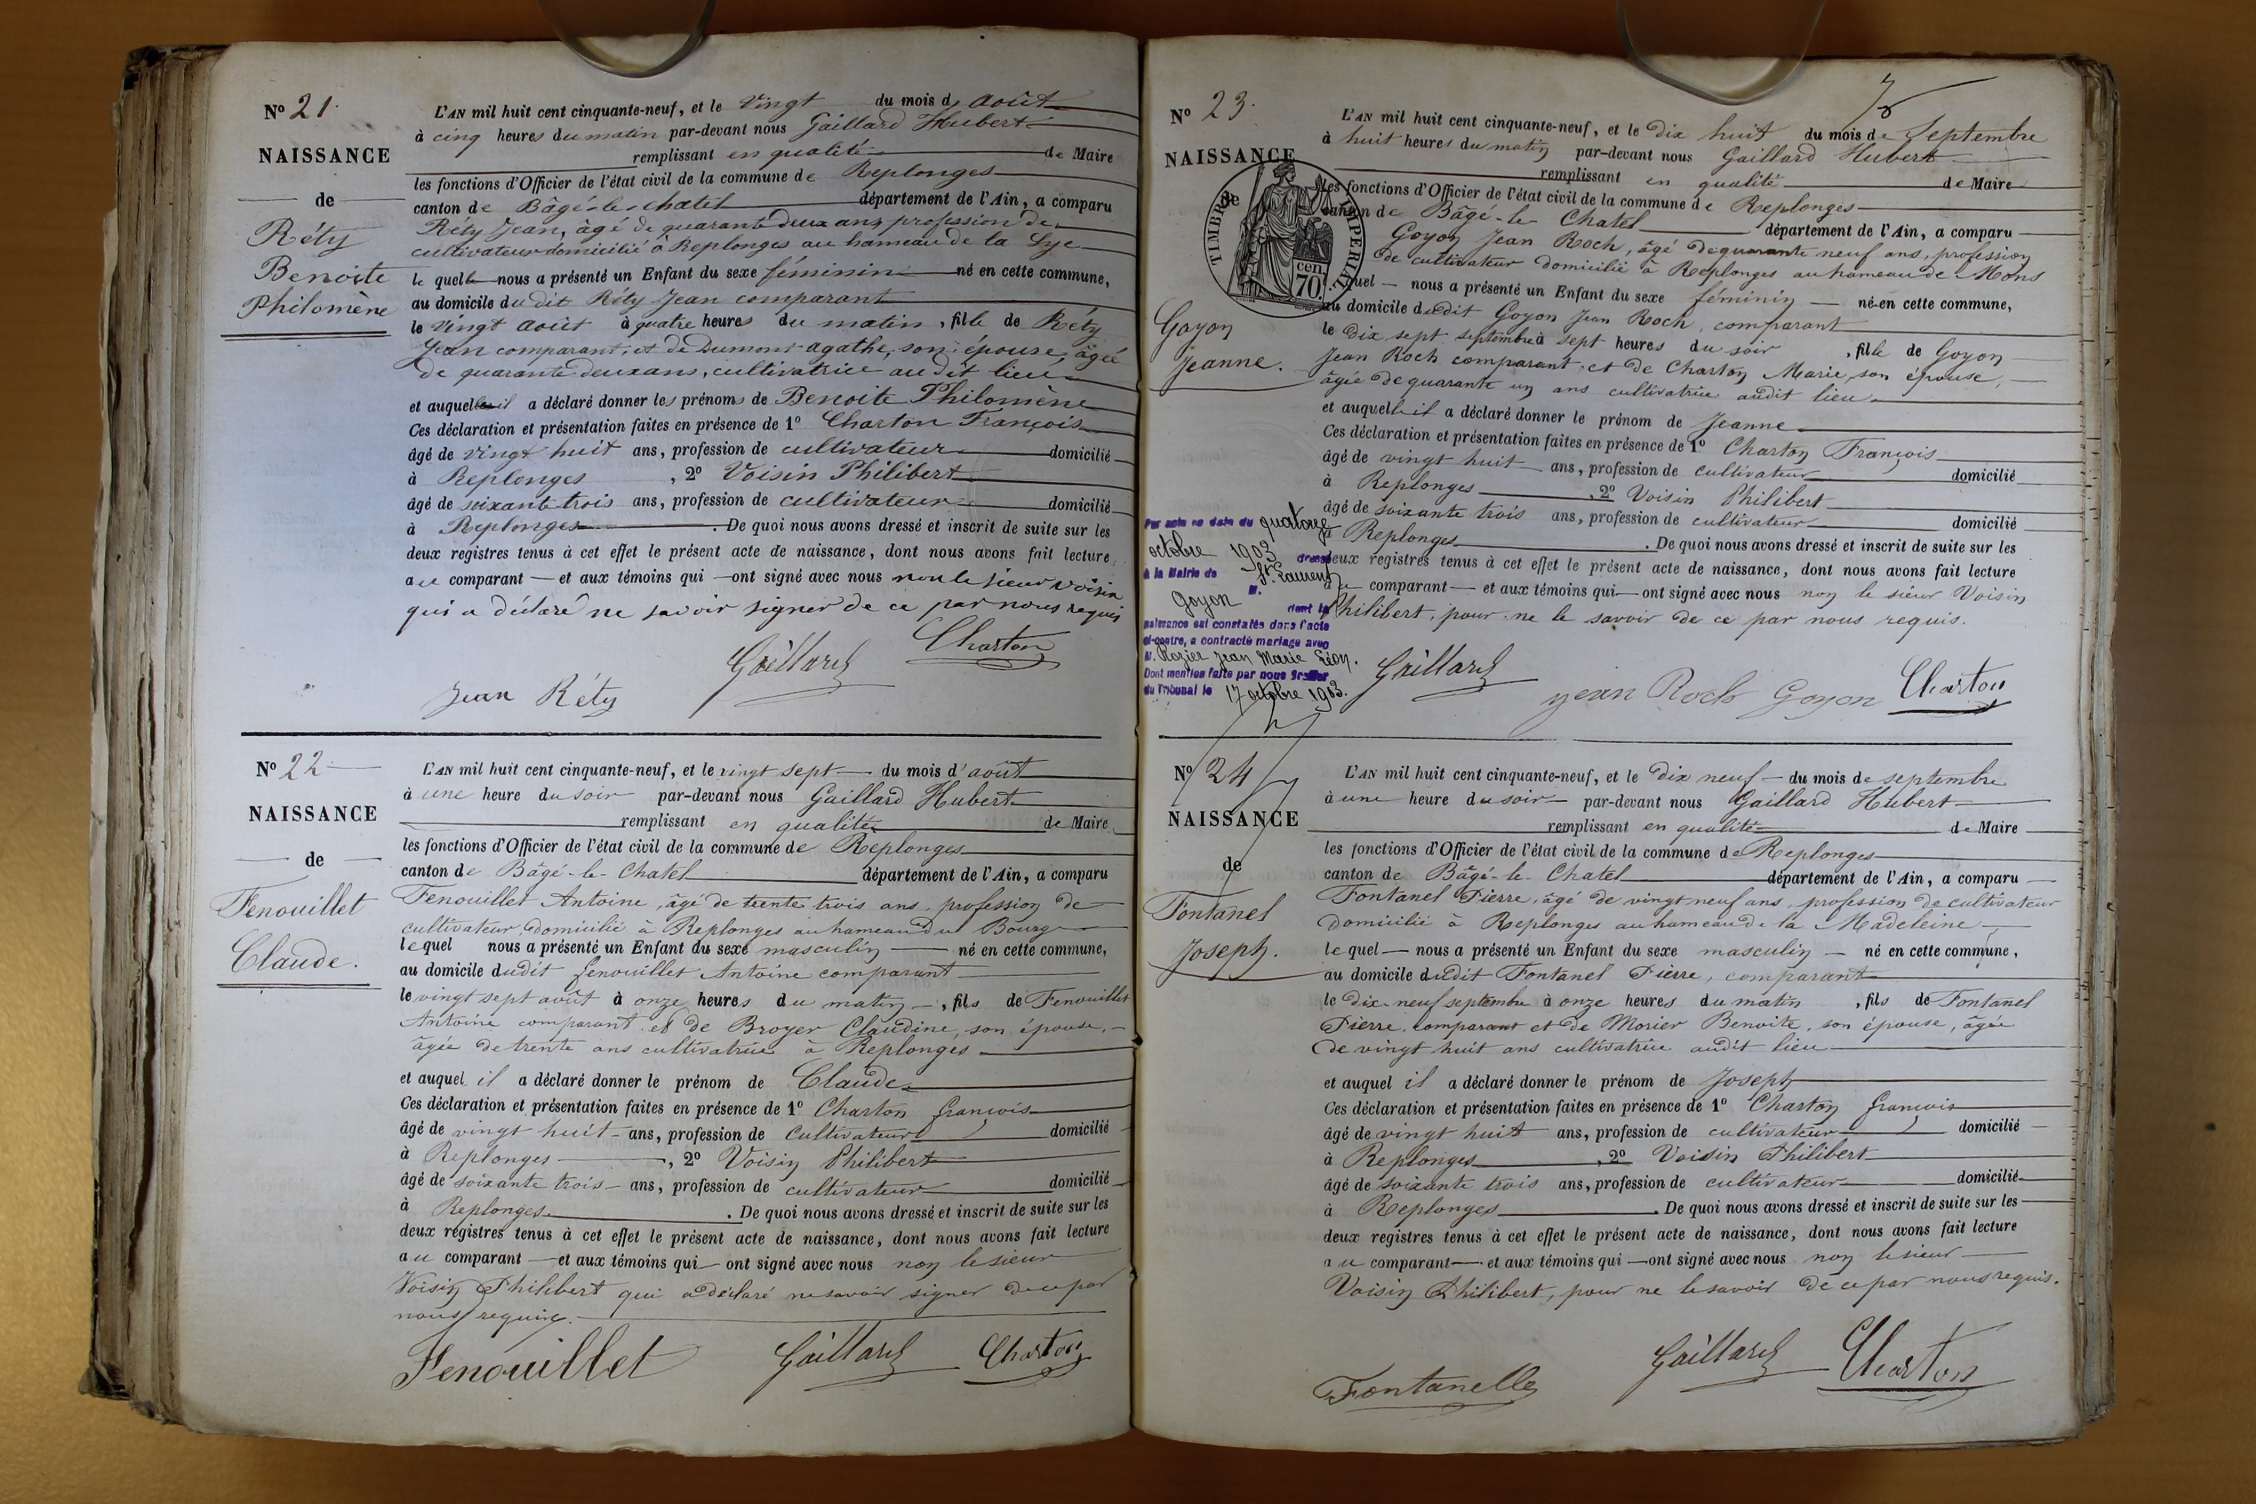 N° 21.
NAISSANCE
de
Réty
Benoite
Philomène
L'AN mil huit cent cinquante-neuf, et le vingt du mois d'août
à cinq heures du matin par-devant nous Gaillard Hubert
remplissant en qualité de Maire
les fonctions d'Officier de l'état civil de la commune de Replonges
canton de Bâgé-le-chatel département de l'Ain, a comparu
Réty Jean, âgé de quarante deux ans, profession de
cultivateur domicilié à Replonges au hameau de la Lye
lequel nous a présenté un Enfant du sexe féminin né en cette commune,
au domicile dudit Réty Jean comparant
le vingt août à quatre heures du matin, fille de Réty
Jean comparant, et de Dumont agathe, son épouse, âgée
de quarante deux ans, cultivatrice au dit lieu
et auquel il a déclaré donner les prénoms de Benoite Philomène
Ces déclaration et présentation faites en présence de 1° Charton François
âgé de vingt huit ans, profession de cultivateur domicilié
à Replonges, 2° Voisin Philibert
âgé de soixante trois ans, profession de cultivateur domicilié
à Replonges. De quoi nous avons dressé et inscrit de suite sur les
deux registres tenus à cet effet le présent acte de naissance, dont nous avons fait lecture
au comparant et aux témoins qui ont signé avec nous non le sieur Voisin
qui a déclaré ne savoir signer de ce par nous requis
Gaillard Charton
Jean Réty
N° 22
NAISSANCE
de
Fenouillet
Claude.
L'AN mil huit cent cinquante-neuf, et le vingt sept du mois d'août
à une heure du soir par-devant nous Gaillard Hubert
remplissant en qualité de Maire
les fonctions d'Officier de l'état civil de la commune de Replonges
canton de Bâgé-le-Chatel département de l'Ain, a comparu
Fenouillet Antoine, âgé de trente trois ans, profession de
cultivateur, domicilié à Replonges au hameau du Bourg
lequel nous a présenté un Enfant du sexe masculin né en cette commune,
au domicile dudit fenouillet Antoine comparant
le vingt sept août à onze heures du matin, fils de Fenouillet
Antoine comparant et de Broyer Claudine, son épouse,
âgée de trente ans cultivatrice à Replonges
et auquel il a déclaré donner le prénom de Claude
Ces déclaration et présentation faites en présence de 1° Charton françois
âgé de vingt huit ans, profession de cultivateur domicilié
à Replonges, 2° Voisin Philibert
âgé de soixante trois ans, profession de cultivateur domicilié
à Replonges. De quoi nous avons dressé et inscrit de suite sur les
deux registres tenus à cet effet le présent acte de naissance, dont nous avons fait lecture
au comparant et aux témoins qui ont signé avec nous non le sieur
Voisin Philibert qui a déclaré ne savoir signer de ce par
nous requis.
Fenouillet Gaillard Charton
N° 23.
NAISSANCE
de
TIMBRE IMPERIAL
cen.
70.
Goyon
Jeanne.
L'AN mil huit cent cinquante-neuf, et le dix huit du mois de Septembre
à huit heures du matin par-devant nous Gaillard Hubert
remplissant en qualité de Maire
les fonctions d'Officier de l'état civil de la commune de Replonges
canton de Bâgé-le-Chatel département de l'Ain, a comparu
Goyon Jean Roch, âgé de quarante neuf ans, profession
de cultivateur domicilié à Replonges au hameau de Mons
lequel nous a présenté un Enfant du sexe féminin né en cette commune,
au domicile dudit Goyon Jean Roch, comparant
le dix sept septembre à sept heures du soir, fille de Goyon
Jean Roch comparant et de Charton Marie, son épouse,
âgée de quarante un ans cultivatrice audit lieu
et auquelle il a déclaré donner le prénom de Jeanne
Ces déclaration et présentation faites en présence de 1° Charton François
âgé de vingt huit ans, profession de cultivateur domicilié
à Replonges, 2° Voisin Philibert
âgé de soixante trois ans, profession de cultivateur domicilié
à Replonges. De quoi nous avons dressé et inscrit de suite sur les
deux registres tenus à cet effet le présent acte de naissance, dont nous avons fait lecture
au comparant et aux témoins qui ont signé avec nous non le sieur Voisin
Philibert, pour ne le savoir de ce par nous requis.
Par acte en date du quatorze
octobre 1903 dressé
à la Mairie de St Laurent
M. Goyon dont la
naissance est constatée dans l'acte
ci-contre, a contracté mariage avec
M. Rozier Jean Marie Léon.
Dont mention faite par nous Greffier
du Tribunal le 17 octobre 1903.
Gaillard Jean Roch Goyon Charton
N° 24
NAISSANCE
de
Fontanel
Joseph.
L'AN mil huit cent cinquante-neuf, et le dix neuf du mois de septembre
à une heure du soir par-devant nous Gaillard Hubert
remplissant en qualité de Maire
les fonctions d'Officier de l'état civil de la commune de Replonges
canton de Bâgé-le-Chatel département de l'Ain, a comparu
Fontanel Pierre, âgé de vingt neuf ans, profession de cultivateur
domicilié à Replonges au hameau de la Madeleine
lequel nous a présenté un Enfant du sexe masculin né en cette commune,
au domicile dudit Fontanel Pierre, comparant
le dix-neuf septembre à onze heures du matin, fils de Fontanel
Pierre, comparant et de Morier Benoite, son épouse, âgée
de vingt huit ans cultivatrice audit lieu
et auquel il a déclaré donner le prénom de Joseph
Ces déclaration et présentation faites en présence de 1° Charton françois
âgé de vingt huit ans, profession de cultivateur domicilié
à Replonges, 2° Voisin Philibert
âgé de soixante trois ans, profession de cultivateur domicilié
à Replonges. De quoi nous avons dressé et inscrit de suite sur les
deux registres tenus à cet effet le présent acte de naissance, dont nous avons fait lecture
au comparant et aux témoins qui ont signé avec nous non le sieur
Voisin Philibert, pour ne le savoir de ce par nous requis.
Fontanelle Gaillard Charton